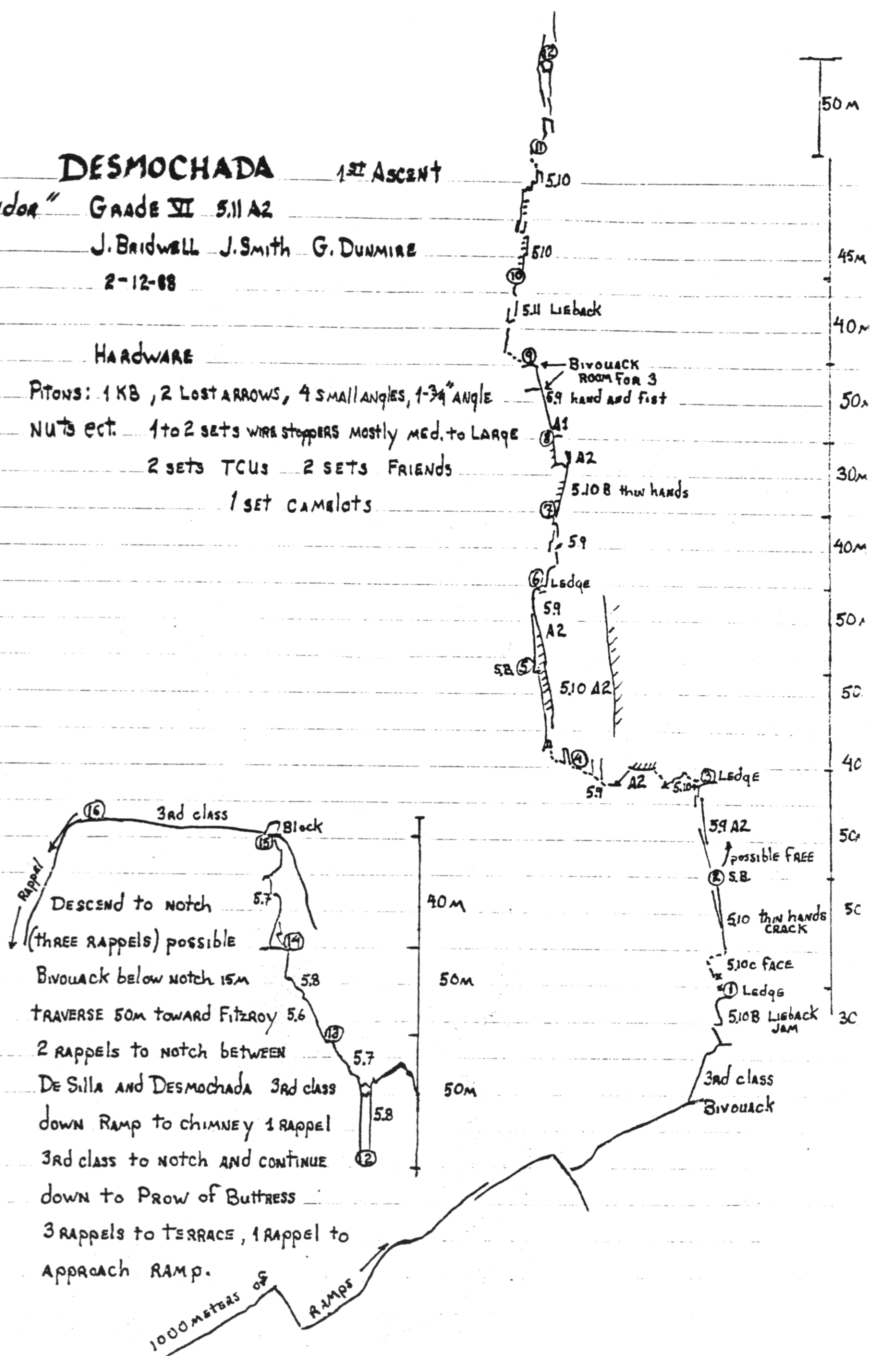 DESMOCHADA 1ST ASCENT
dor" GRADE VI 5.11 A2
J. BRIDWELL J. SMITH G. DUNMIRE
2-12-88
HARDWARE
PITONS: 1 KB, 2 LOST ARROWS, 4 SMALL ANGLES, 1-3/4" ANGLE
NUTS ECT. 1 to 2 SETS WIRE STOPPERS MOSTLY MED. to LARGE
2 SETS TCUS 2 SETS FRIENDS
1 SET CAMELOTS
12
50M
11
5.10
5.10
45M
10
5.11 LIEBACK
40M
9
BIVOUACK
ROOM FOR 3
5.9 hand and fist
50M
A1
8
A2
30M
5.10B thin hands
7
5.9
40M
6 LEDGE
5.9
50M
A2
5.B. 5
5.10 A2
50
4
40
3 LEDGE
5.9
A2
5.10
5.9 A2
50
possible FREE
2 S.B.
5.10 thin hands
CRACK
50
5.10c FACE
1 LEDGE
5.10B LIEBACK
JAM
30
3RD class
BIVOUACK
16
3RD class
Block
15
RAPPEL
5.7
40M
14
DESCEND to NOTCH
(THREE RAPPELS) possible
BIVOUACK below NOTCH 15M
5.8
50M
TRAVERSE 50M TOWARD FITZROY
5.6
13
2 RAPPELS to NOTCH BETWEEN
5.7
DE SILLA AND DESMOCHADA 3RD class
50M
down RAMP to CHIMNEY 1 RAPPEL
5.8
3RD class to NOTCH AND CONTINUE
12
down to PROW OF BUTTRESS
3 RAPPELS to TERRACE, 1 RAPPEL to
APPROACH RAMP.
1000 METERS OF RAMPS